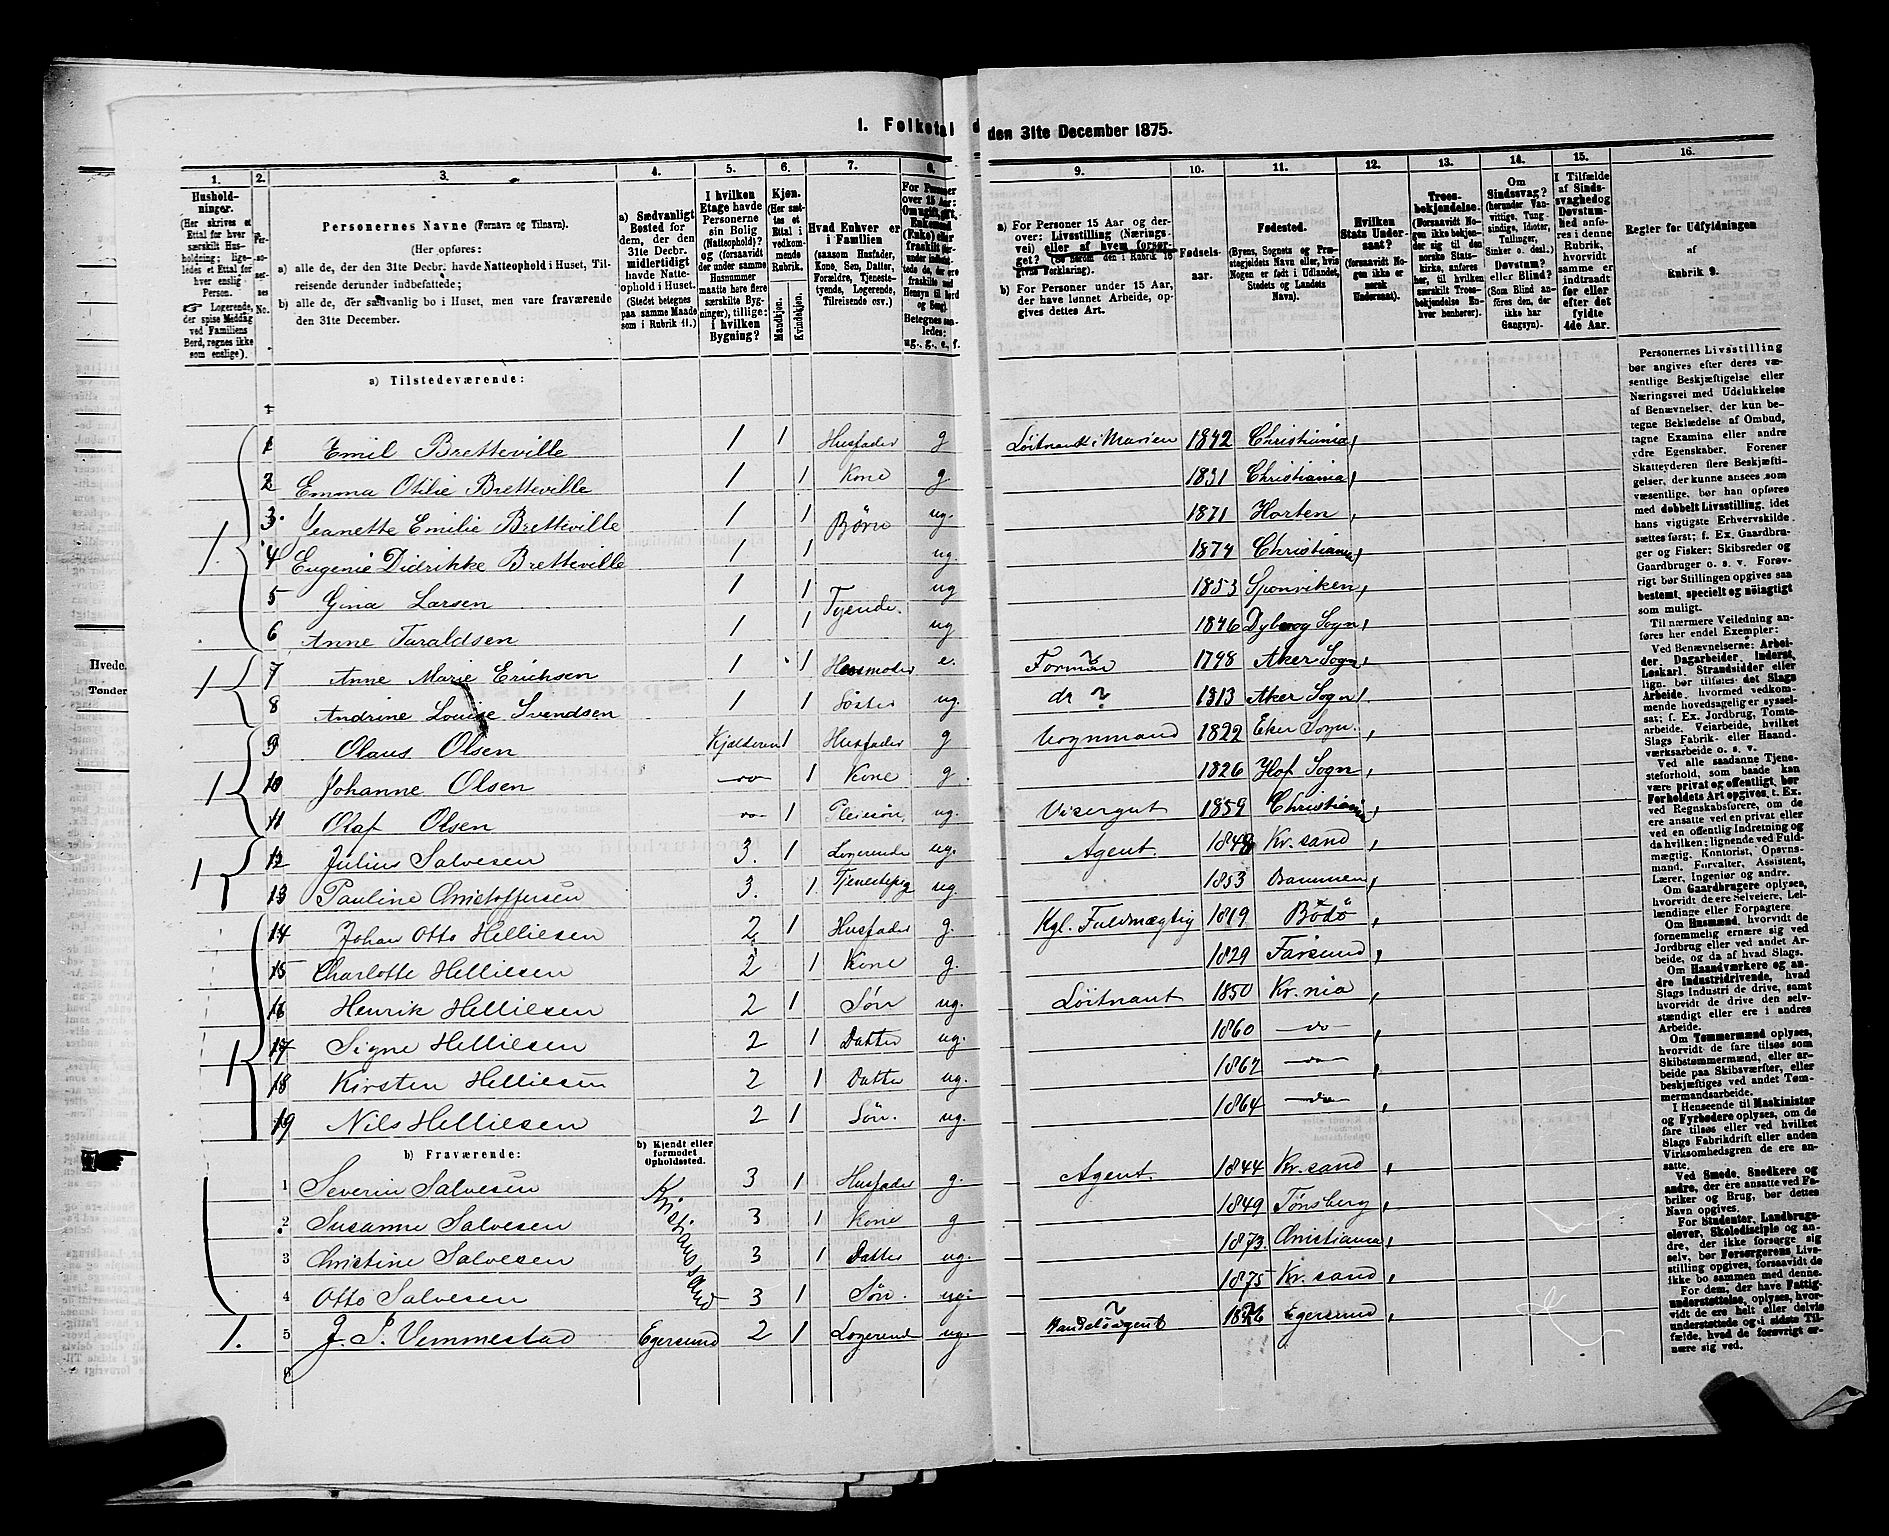 1. Folketal den 31te December 1875.
1. 2. 3. 4. 5. 6. 7. 8. 9. 10. 11. 12. 13. 14. 15. 16.
Husholdninger.
(Her skrives et Ettal for hver særskilt Husholdning; ligeledes et Ettal for hver enslig Person.
☞ Logerende, der spise Middag ved Familiens Berd, regnes ikke som enslige).
Personernes No.
Personernes Navne (Fornavn og Tilnavn).
(Her opføres:
a) alle de, der den 31te Decbr. havde Natteophold i Huset, Tilreisende derunder indbefattede;
b) alle de, der sædvanlig bo i Huset, men vare fraværende den 31te December.
a) Sædvanligt Bosted for dem, der den 31te Decbr. midlertidigt havde Natteophold i Huset.
(Stedet betegnes paa samme Maade som i Rubrik 11.)
I hvilken Etage havde Personerne sin Bolig (Natteophold)? og (forsaavidt der under samme Husnummer maatte høre flere særskilte Bygninger), tillige: i hvilken Bygning?
Kjøn.
(Her sættes et Ettal i vedkommende Rubrik.
Mandkjøn. Kvindekjøn.
Hvad Enhver er i Familien
(saasom Husfader, Kone, Søn, Datter, Forældre, Tjenestetyende, Logerende, Tilreisende osv.)
For Personer over 15 Aar: Om ugift, gift, Enkemand (Enke) eller fraskilt
Betegnes saaledes: ug., g., e., f.
a) For Personer 15 Aar og derover: Livsstilling (Næringsvei) eller af hvem forsørget? (Se herom den i Rubrik 16 givne Forklaring).
b) For Personer under 15 Aar, der have lønnet Arbeide, opgives dettes Art.
Fødselsaar.
Fødested.
(Byens, Sognets og Præstegjeldets Navn eller, hvis Nogen er født i Udlandet, Stedets og Landets Navn).
Hvilken Stats Undersaat?
(forsaavidt Nogen ikke er norsk Undersaat).
Troesbekjendelse.
(Forsaavidt Nogen ikke bekjender sig til den norske Statskirke, anføres her, til hvilken særskilt Troesbekjendelse Enhver henhører).
Om Sindssvag? (herunder Vanvittige, Tungsindige, Idioter, Tullinger, Sinker o. desl.) Døvstum? eller Blind? (Som Blind anføres den, der ikke har Gangsyn).
I Tilfælde af Sindssvaghed og Døvstumhed anføres i denne Rubrik, hvorvidt samme er indtraadt før eller efter det fyldte 4de Aar.
Regler for Udfyldningen af Rubrik 9.
a) Tilstedeværende:
1 Emil Bretteville 1 1 Husfader g Løitnant i Marien 1842 Christiania
2 Emma Otilie Bretteville 1 1 Kone g 1831 Christiania
3 Jeanette Emilie Bretteville 1 1 Børn ug. 1871 Horten
1. 4 Eugenie Didrikke Bretteville 1 1 ug. 1874 Christiania
5 Gina Larsen 1 1 Tyende. ug 1853 Sponviken
6 Anne Taraldsen 1 1 ug 1846 Dybvog Sogn
1 7 Anne Marie Erichsen 1 1 Husmoder e. Formue ? 1798 Aker Sogn
8 Andrine Louise Svendsen 1 1 Søster ug. do ? 1813 Aker Sogn
9 Olaus Olsen Kjælderen 1 Husfader g Vognmand 1822 Eker Sogn.
1 10 Johanne Olsen —"— 1 Kone g. 1826 Hof Sogn
11 Olaf Olsen —"— 1 Pleiesøn, ug. Visergut 1859 Christiania
1 12 Julius Salvesen 3. 1 Logerende ug. Agent. 1848 Kr.sand
13 Pauline Christoffersen 3. 1 Tjenestepig ug. 1853 Drammen
14 Johan Otto Helliesen 2 1 Husfader g. Kgl. Fuldmægtig 1819 Bodö
15 Charlotte Helliesen 2 1 Kone g. 1829 Farsund
16 Henrik Helliesen 2 1 Søn ug. Löitnant 1850 Kr.nia
1 17 Signe Helliesen 2 1 Datter ug. 1860 —do—
18 Kirsten Helliesen 2 1 Datter ug. 1862 —do—
19 Nils Helliesen 2 1 Søn. ug. 1864 —do—
b) Fraværende:
b) Kjendt eller formodet Opholdssted.
1 Severin Salvesen Kristianssand 3 1 Husfader g. Agent. 1844 Kr.sand
2 Susanne Salvesen 3 1 Kone g 1849 Tønsberg
3 Christine Salvesen 3 1 Datter ug. 1873. Christiania
4 Otto Salvesen 3 1 Søn. ug. 1875 Kr.sand
1. 5 J. S. Vemmestad Egersund 2 1 Logerende ug. Handelsagent ? 1826 Egersund
6
Personernes Livsstilling bør angives efter deres væsentlige Beskjæftigelse eller Næringsvei med Udelukkelse af Benævnelser, der kun betegne Beklædelse af Ombud, tagne Examina eller andre ydre Egenskaber. Forener Skatteyderen flere Beskjæftigelser, der kunne ansees som væsentlige, bør han opføres med dobbelt Livsstilling, idet hans vigtigste Erhvervskilde sættes først; f. Ex. Gaardbruger og Fisker; Skibsreder og Gaardbruger o. s. v. Forøvrigt bør Stillingen opgives saa bestemt, specielt og nøiagtigt som muligt.
Til nærmere Veiledning anføres her endel Exempler:
Ved Benævnelserne: Arbeider, Dagarbeider, Inderst, Løskarl, Strandsidder eller lign. bør tilføies det Slags Arbeide, hvormed vedkommende hovedsagelig er sysselsat; f. Ex. Jordbrug, Tomtearbeide, Veiarbeide, hvilket Slags Fabrik- eller Haandværksarbeide o. s. v.
Ved alle saadanne Tjenesteforhold, som baade kan være privat og offentligt, bør Forholdets Art opgives, t. Ex. ved Regnskabsførere, om de ere ansatte ved en privat eller ved en offentlig Indretning og da hvilken; lignende ved Fuldmægtig, Kontorist, Opsynsmand, Forvalter, Assistent, Lærer, Ingeniør og andre.
Om Gaardbrugere oplyses, hvorvidt de ere Selveiere, Leilændinge eller Forpagtere
Om Husmænd, hvorvidt de fornemmelig ernære sig ved Jordbrug eller ved andet Arbeide, og da af hvad Slags.
Om Haandværkere og andre Industridrivende, hvad Slags Industri de drive, samt hvorvidt de drive den selvstændigt eller ere i andres Arbeide.
Om Tømmermænd oplyses, hvorvidt de fare tilsøs som Skibstømmermænd, eller arbeide paa Skibsværfter, eller beskjæftiges ved andet Tømmermandsarbeide.
I Henseende til Maskinister og Fyrbødere oplyses, om de fare tilsøs eller ved hvilket Slags Fabrikdrift eller anden Virksomhedsgren de ere ansatte.
Ved Smede, Snedkere og andre, der ere ansatte ved Fabriker og Brug, bør dettes Navn opgives.
For Studenter, Landbrugselever, Skoledisciple og andre, der ikke forsørge sig selv, bør Forsørgerens Livsstilling opgives, forsaavidt de ikke bo sammen med denne.
For dem, der have Fattigunderstøttelse, oplyses, hvorvidt de ere helt eller delvis understøttede og i sidste Tilfælde, hvad de forøvrigt ernære sig ved.
Hvede.
Tønder